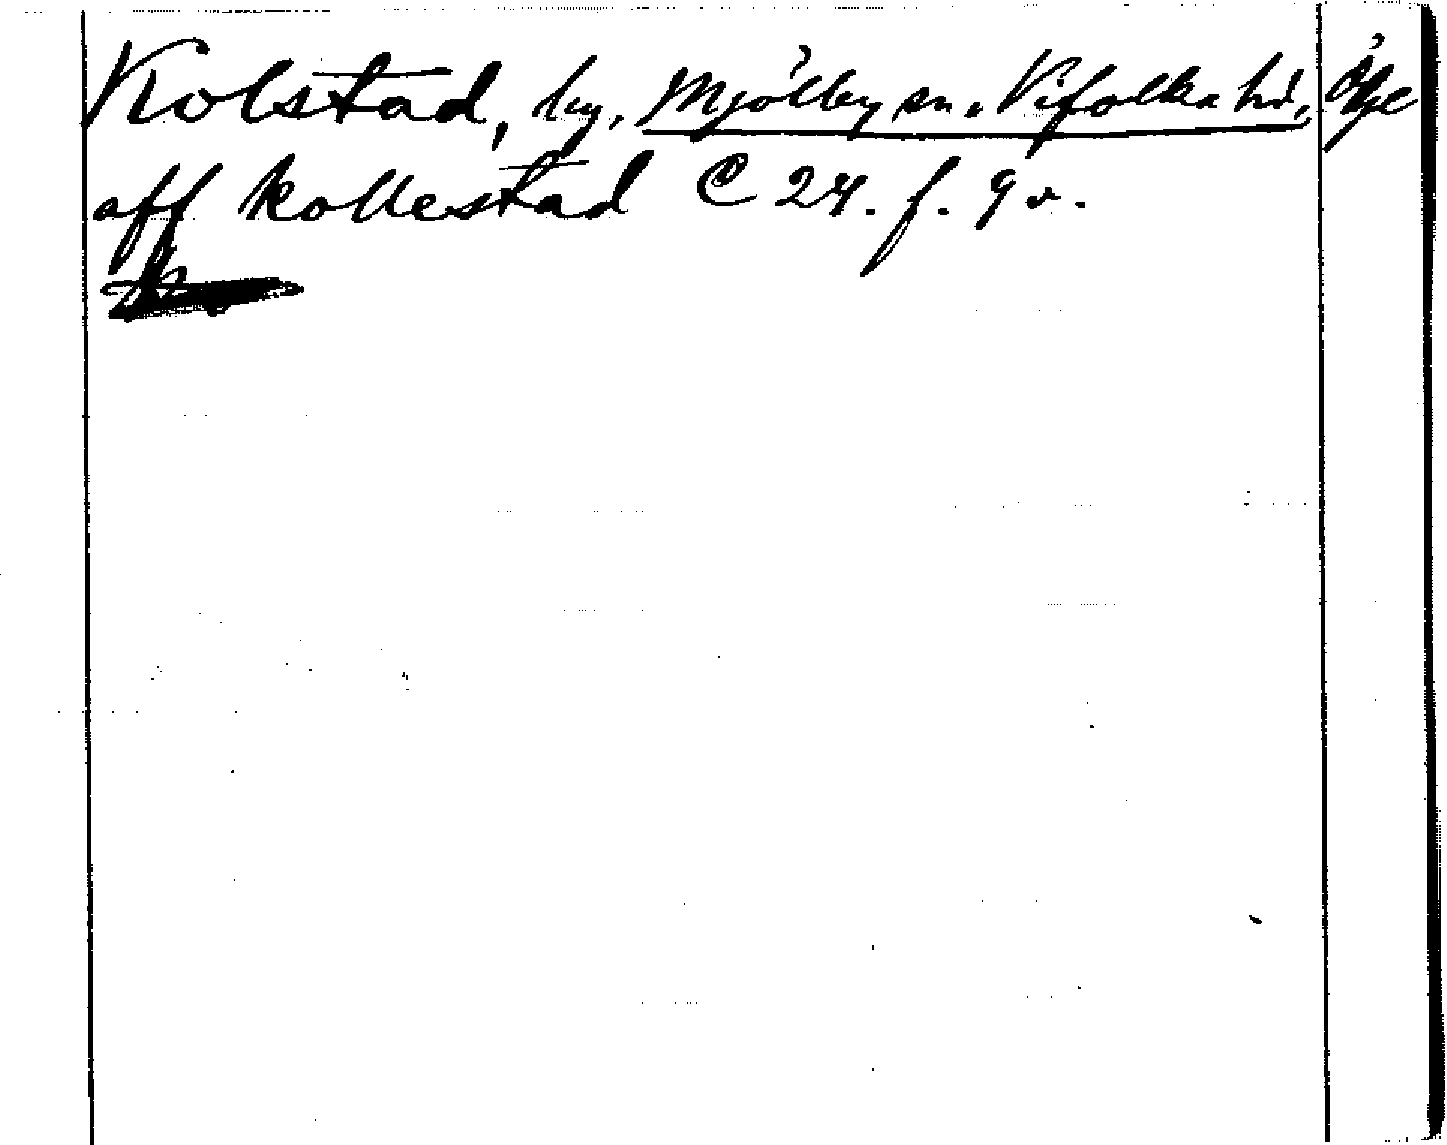 Kolstad, by, Mjölby sn. Vifolka hd, Ög
aff kollestad C 24. f. 9 v.